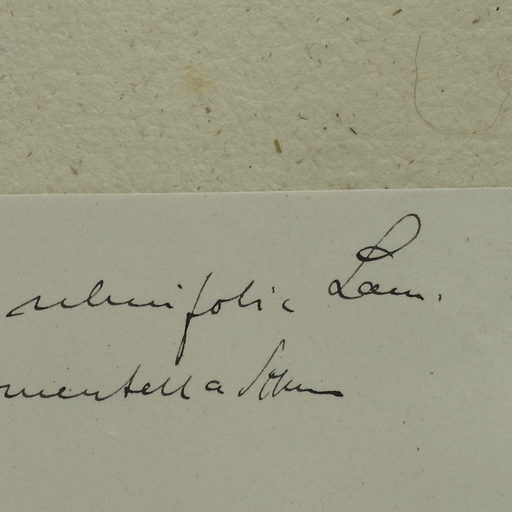 ulmifolia Lam.
omentella Schum